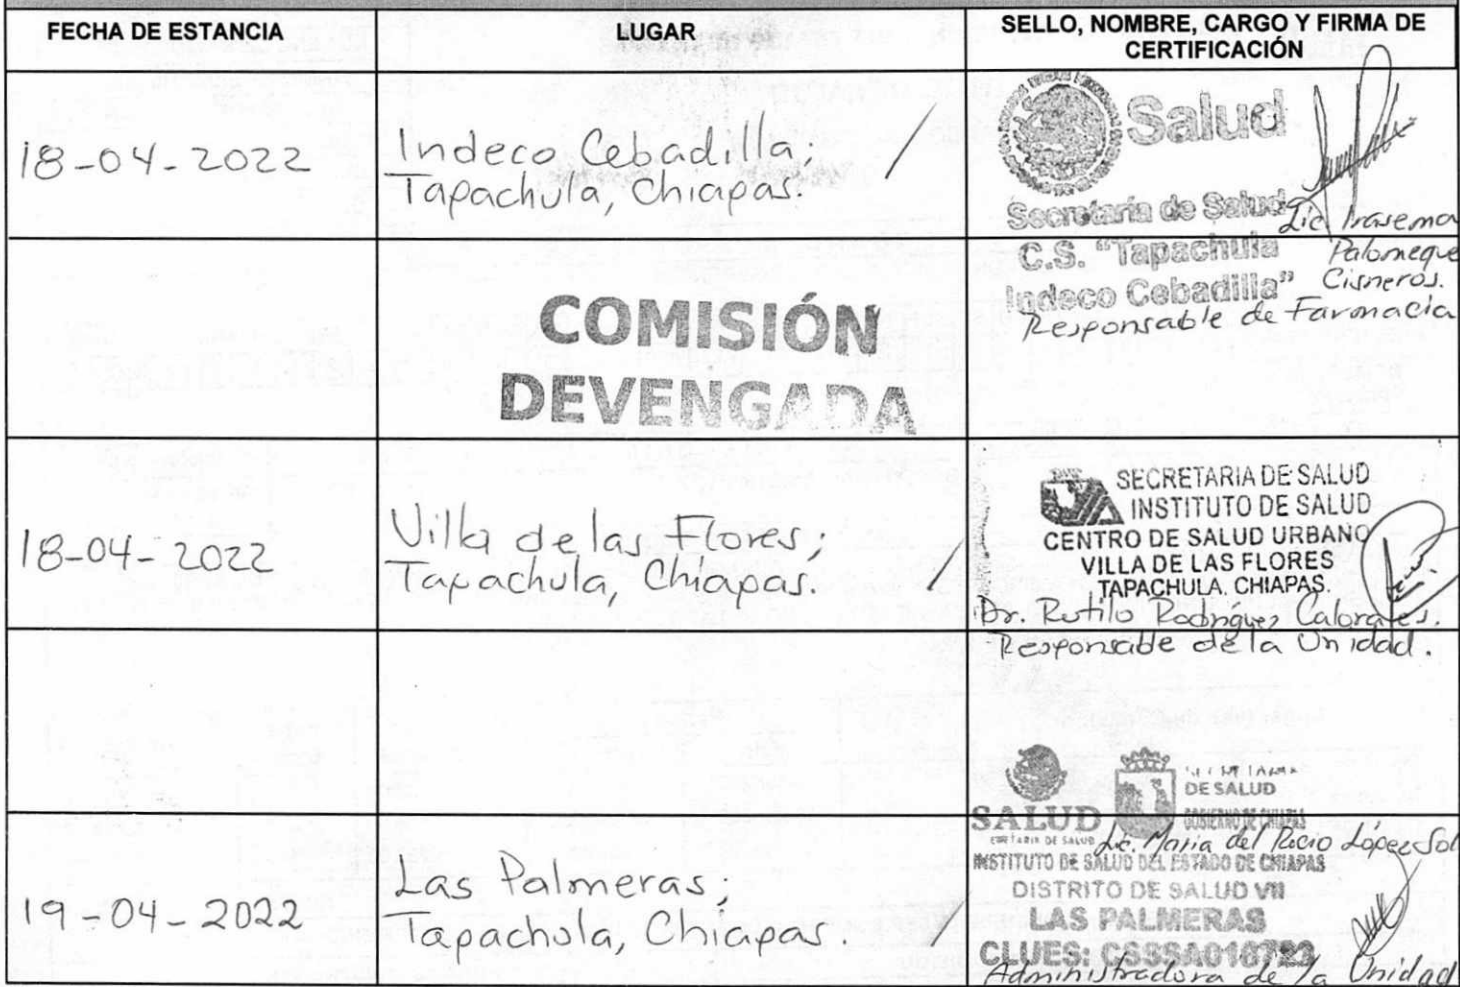 FECHA DE ESTANCIA
LUGAR
SELLO, NOMBRE, CARGO Y FIRMA DE
CERTIFICACIÓN
18-04-2022
Indeco Cebadilla;
Tapachula, Chiapas.
/
Salud
Secretaría de Salud
C.S. "Tapachula
Indeco Cebadilla"
Lic. Irasema
Palomeque
Cisneros.
Responsable de Farmacia
COMISIÓN
DEVENGADA
18-04-2022
Villa de las Flores;
Tapachula, Chiapas.
/
SECRETARIA DE SALUD
INSTITUTO DE SALUD
CENTRO DE SALUD URBANO
VILLA DE LAS FLORES
TAPACHULA, CHIAPAS.
Dr. Rutilo Rodríguez
Responsable de la Unidad.
19-04-2022
Las Palmeras;
Tapachula, Chiapas.
/
SALUD
DE SALUD
GOBIERNO DE CHIAPAS
Lic. Maria del Rocio López Sol
INSTITUTO DE SALUD DEL ESTADO DE CHIAPAS
DISTRITO DE SALUD VII
LAS PALMERAS
CLUES:
Administradora de la Unidad